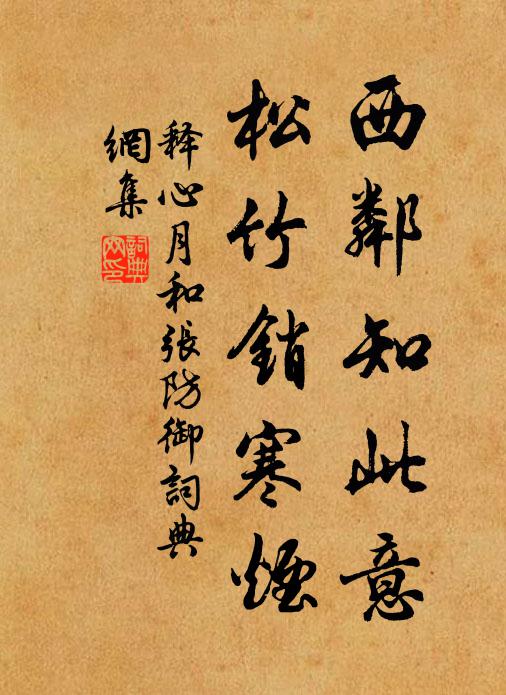 西鄰知此意
松竹銷寒煙
释心月和張防御詞典
網集
詞典
网印